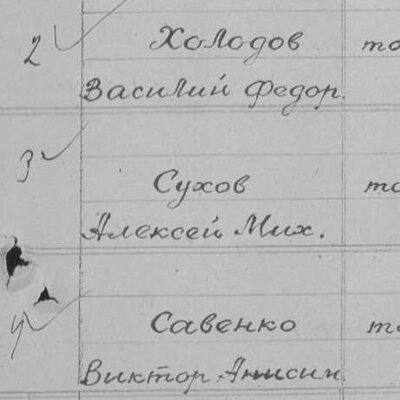 2 Холодов то
Василий Федор.
3 Сухов то
Алексей Мих.
4 Савенко то
Виктор Анисим